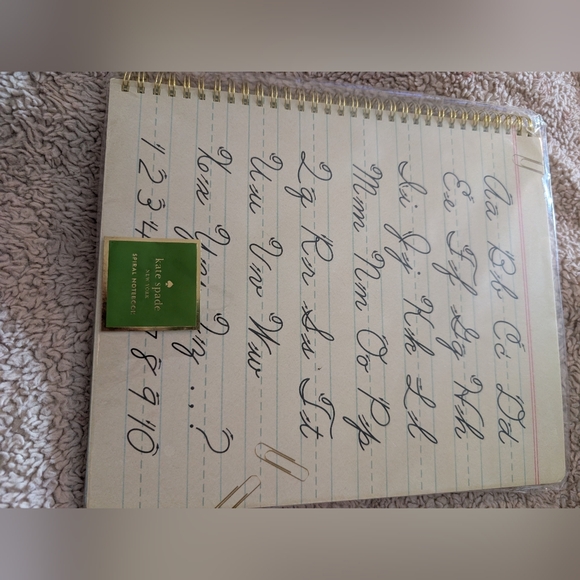 Aa Bb Cc Dd
Ee Ff Gg Hh
Ii Jj Kk Ll
Mm Nn Oo Pp
Qq Rr Ss Tt
Uu Vv Ww
Xx Yy Zz ...?
1 2 3 4 7 8 9 10
kate spade
NEW YORK
SPIRAL NOTEBOOK